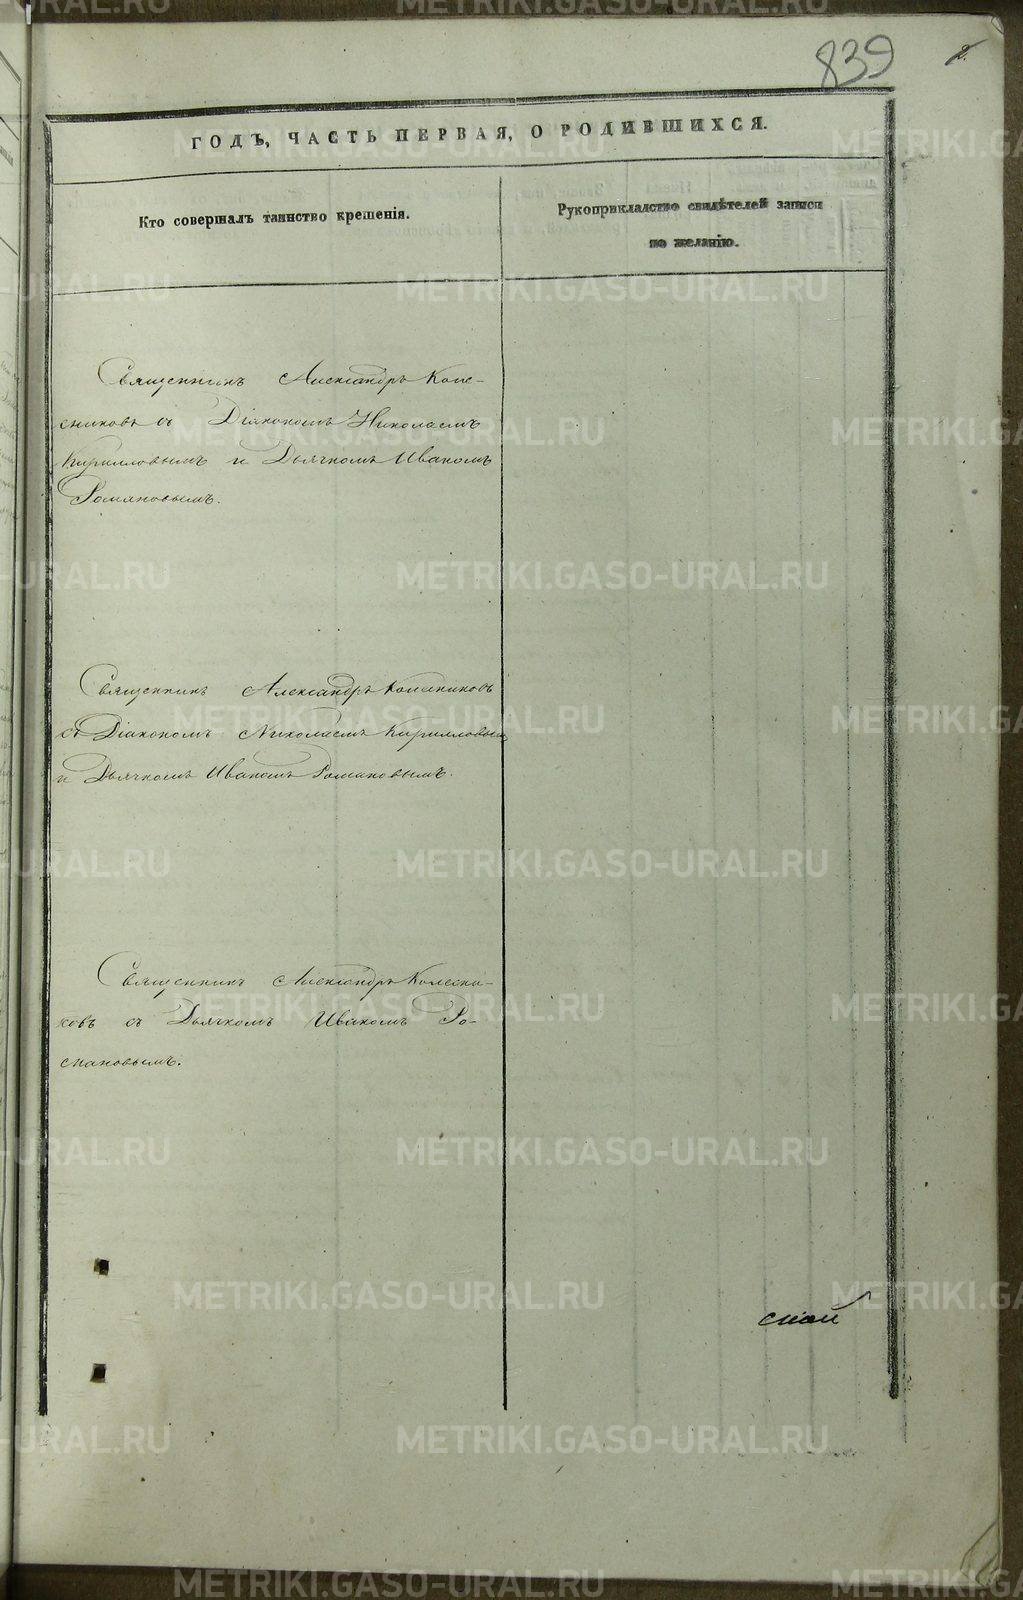 839
2.
ГОДЪ, ЧАСТЬ ПЕРВАЯ, О РОДИВШИХСЯ.
Кто совершалъ таинство крещенія.
Рукоприкладство свидѣтелей записи
по желанію.
Священникъ Александръ Коле-
сниковъ съ Діакономъ Николаемъ
Кирилловымъ и Дьячкомъ Иваномъ
Романовымъ.
Священникъ Александръ Колесниковъ
съ Діакономъ Николаемъ Кирилловым
и Дьячкомъ Иваномъ Романовымъ.
Священникъ Александръ Колесни-
ковъ съ Дьячкомъ Иваномъ Ро-
мановымъ.
ской
METRIKI.GASO-URAL.RU